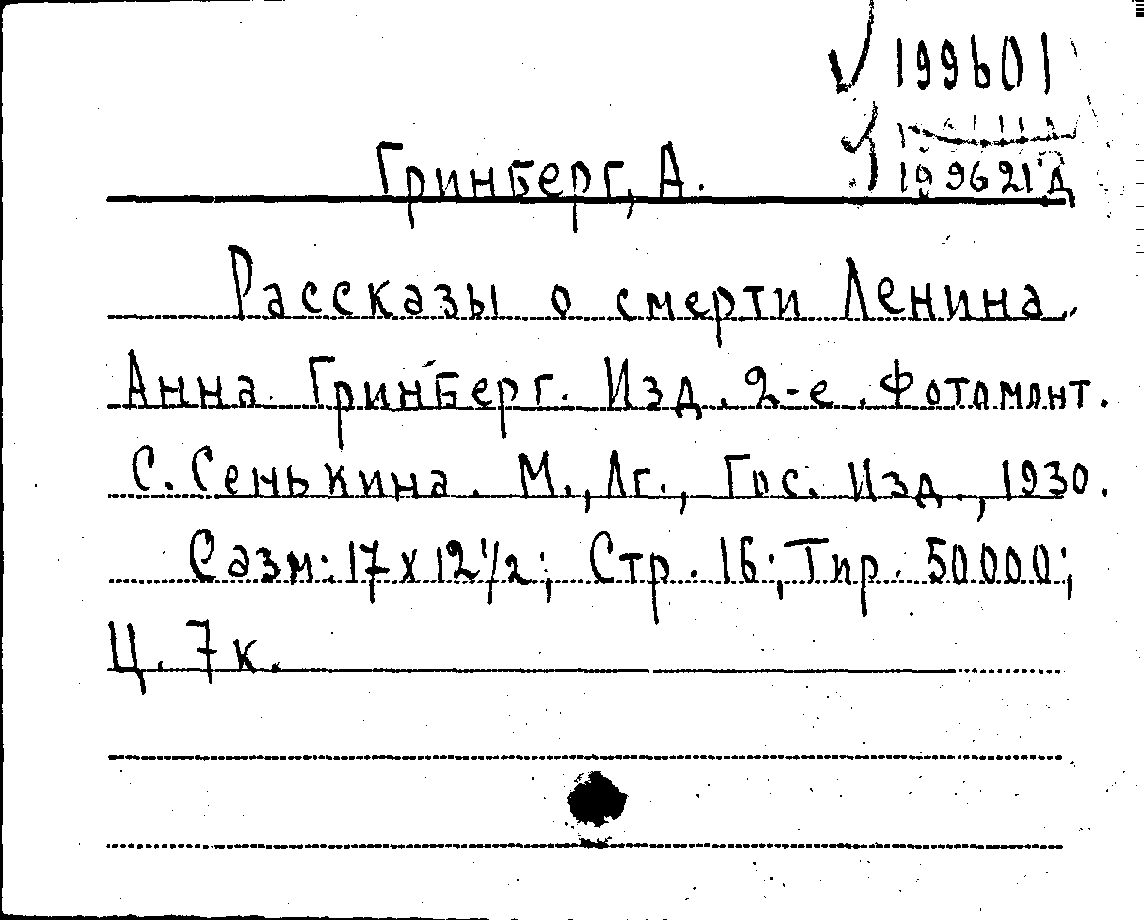 199601
199621д
Гринберг, А.
Рассказы о смерти Ленина.
Анна Гринберг. Изд. 2-е. Фотомонт.
С. Сенькина. М., Лг., Гос. Изд., 1930.
Разм: 17 х 12 1/2; Стр. 16; Тир. 50000;
Ц. 7 к.